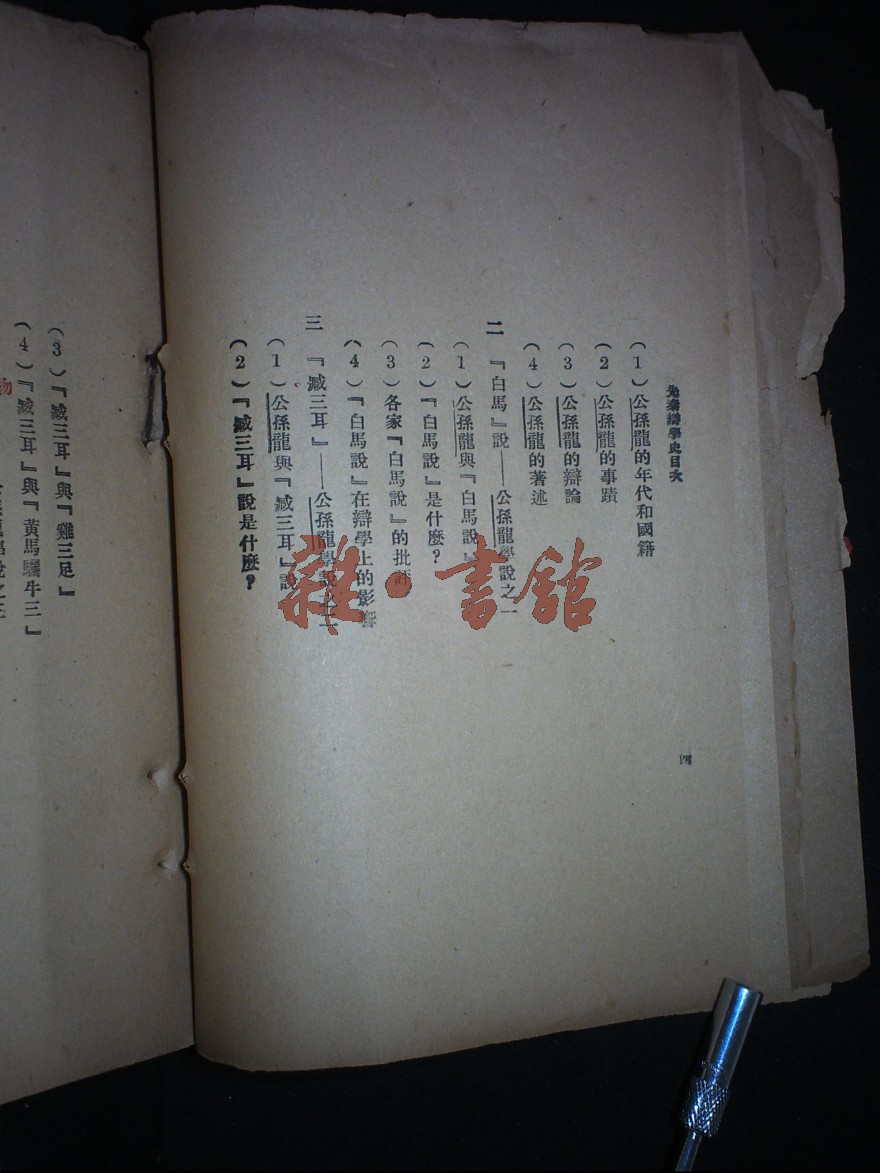 先秦辯學史目次
(1)公孫龍的年代和國籍
(2)公孫龍的事蹟
(3)公孫龍的辯論
(4)公孫龍的著述
二 『白馬』說——公孫龍學說之一
(1)公孫龍與『白馬說』
(2)『白馬說』是什麼？
(3)各家『白馬說』的批評
(4)『白馬說』在辯學上的影響
三 『臧三耳』——公孫龍學說之二
(1)公孫龍與『臧三耳』說
(2)『臧三耳』說是什麼？
四
(3)『臧三耳』與『雞三足』
(4)『臧三耳』與『黃馬驪牛三』
雜·書館